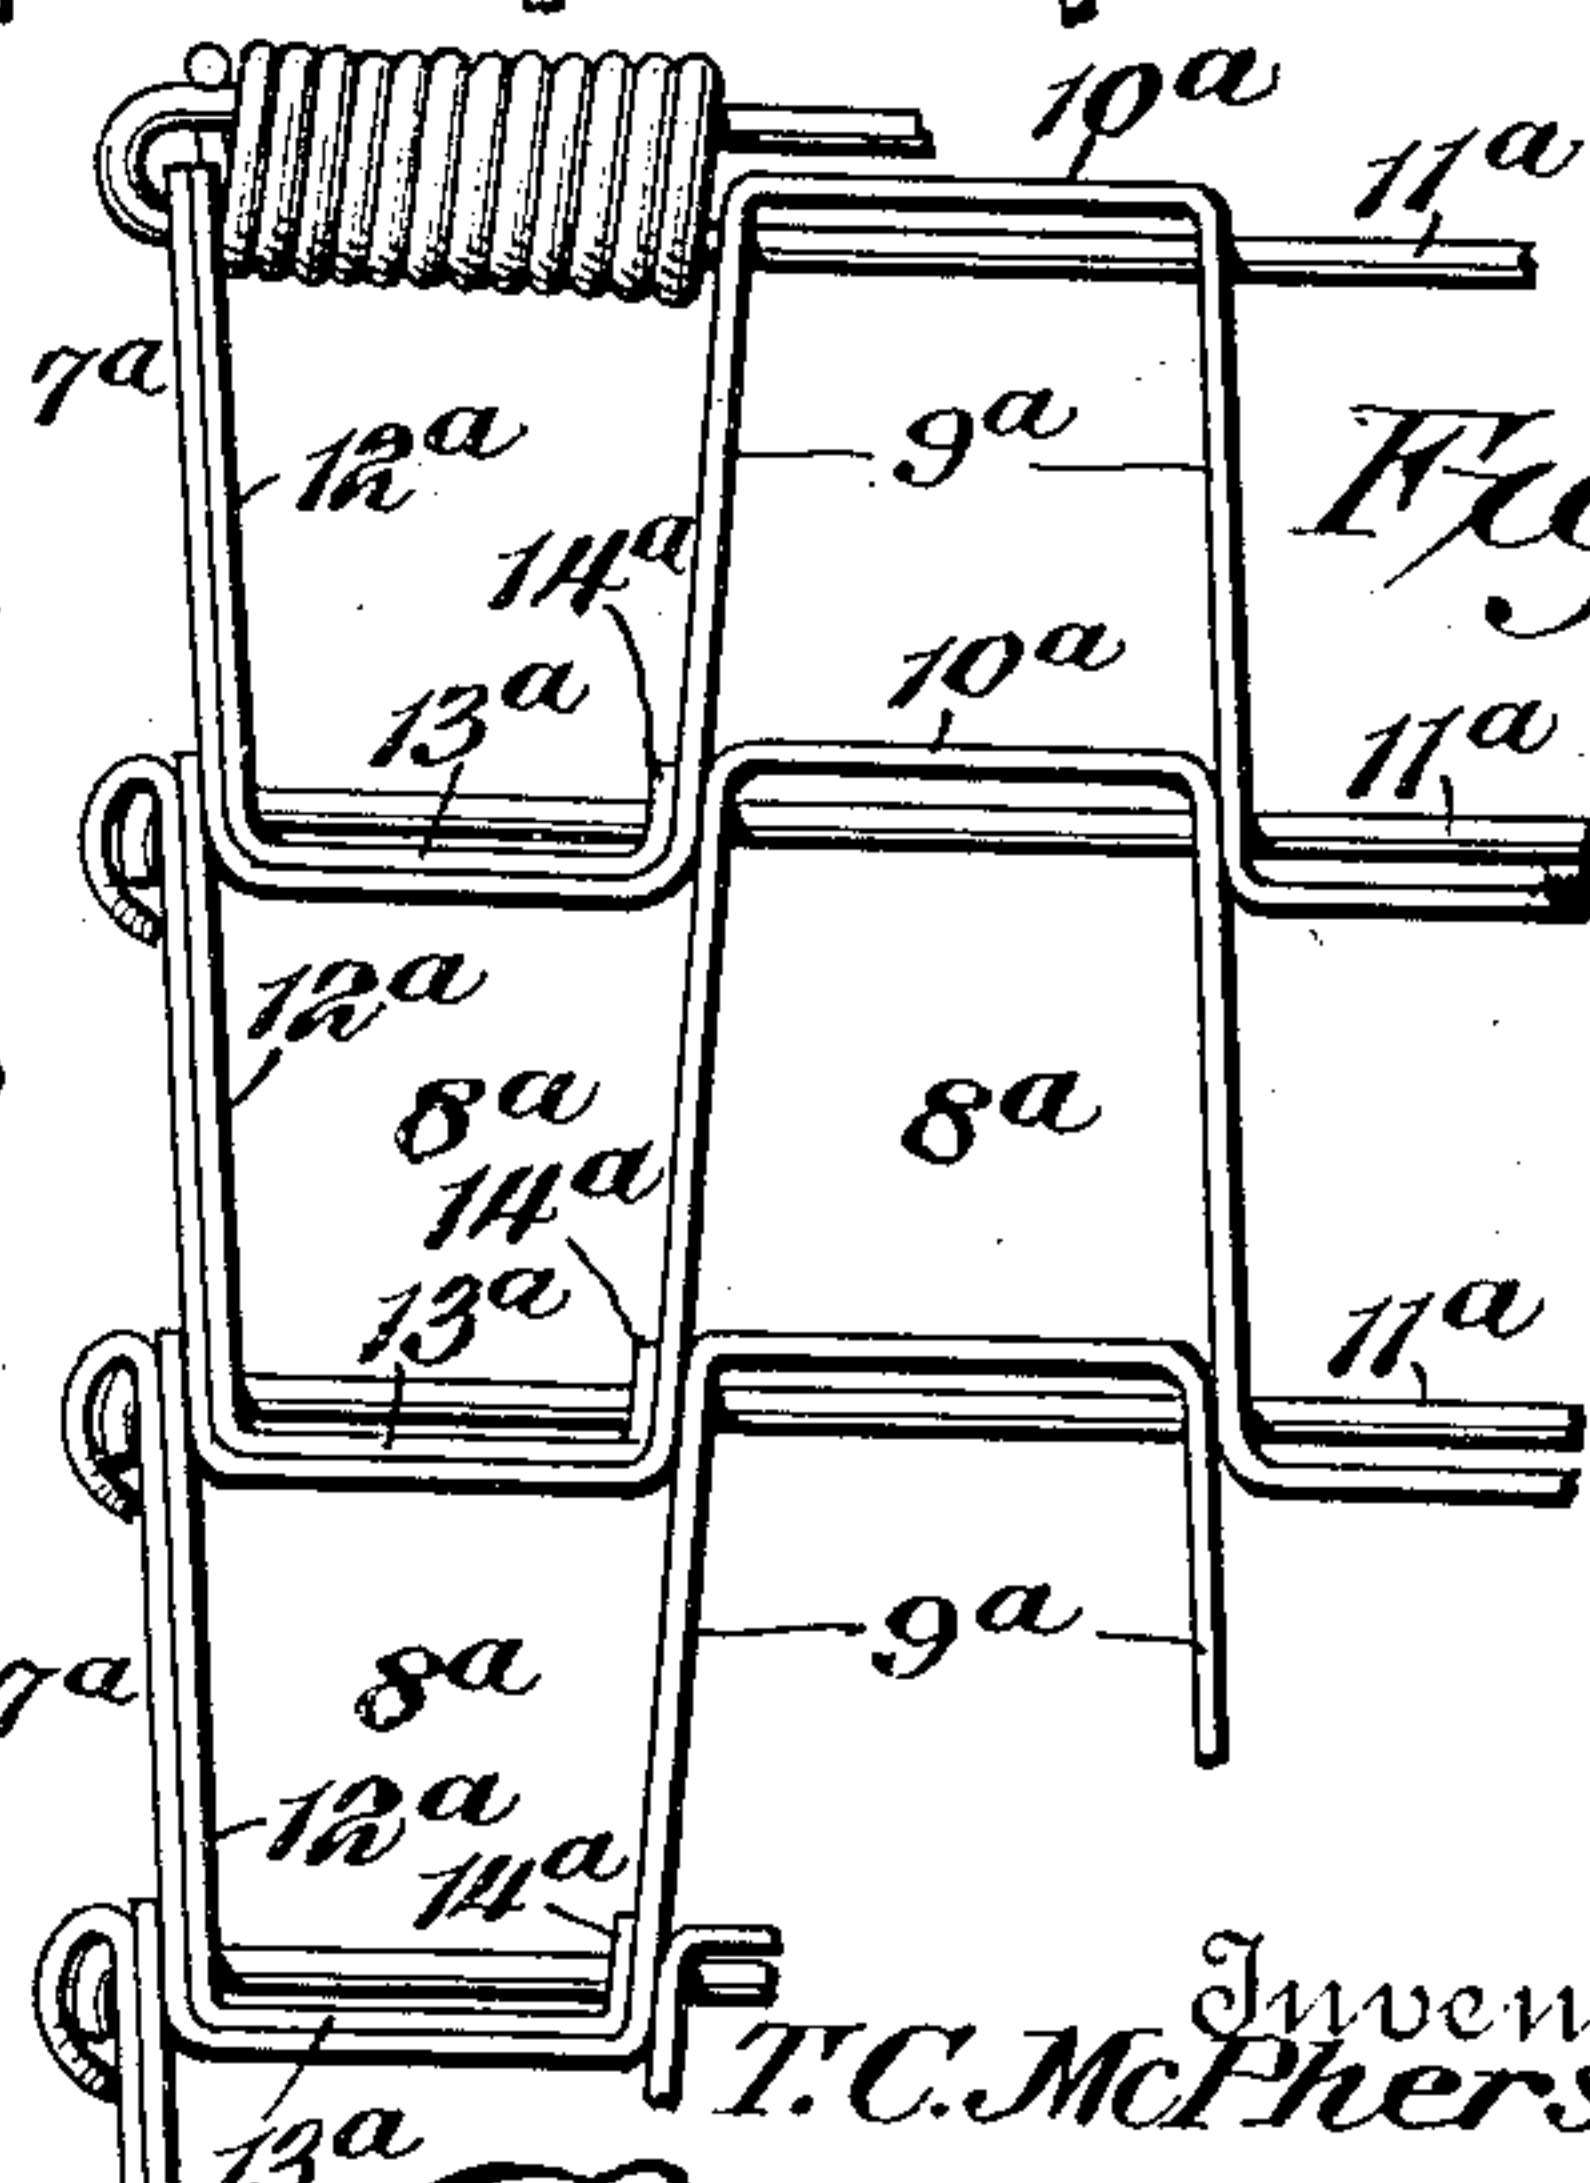 10a
11a
7a
12a
9a
14a
10a
13a
11a
12a
8a
8a
14a
13a
11a
9a
8a
7a
12a
14a
Inven
T. C. McPhers
13a